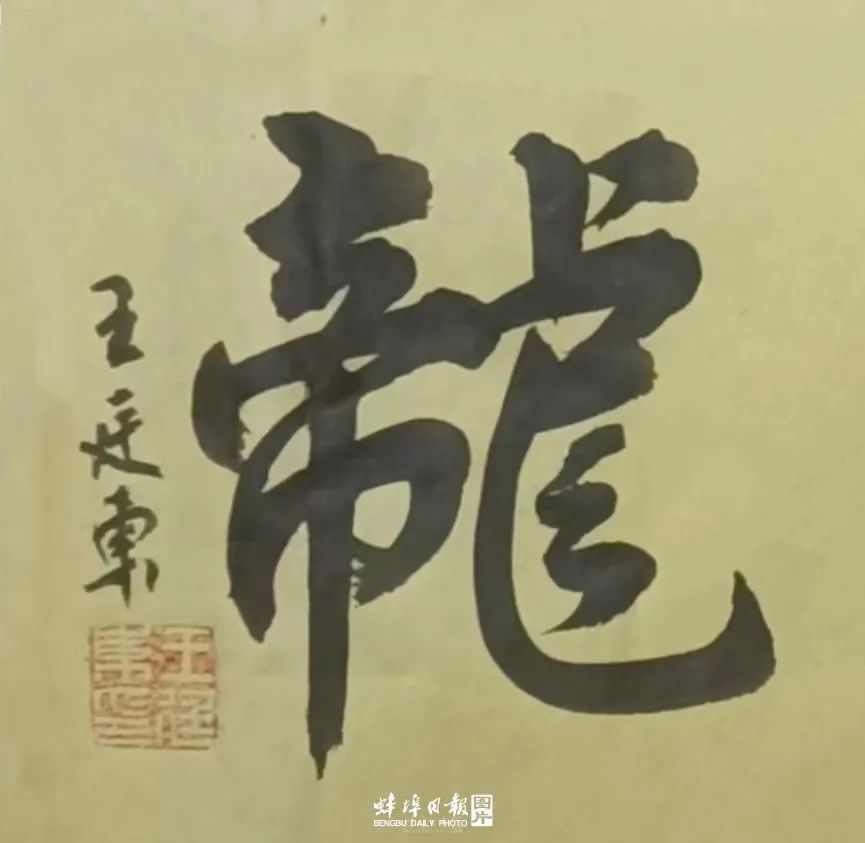 龍
王廷東
王廷東印
蚌埠日報 图片
BENGBU DAILY PHOTO